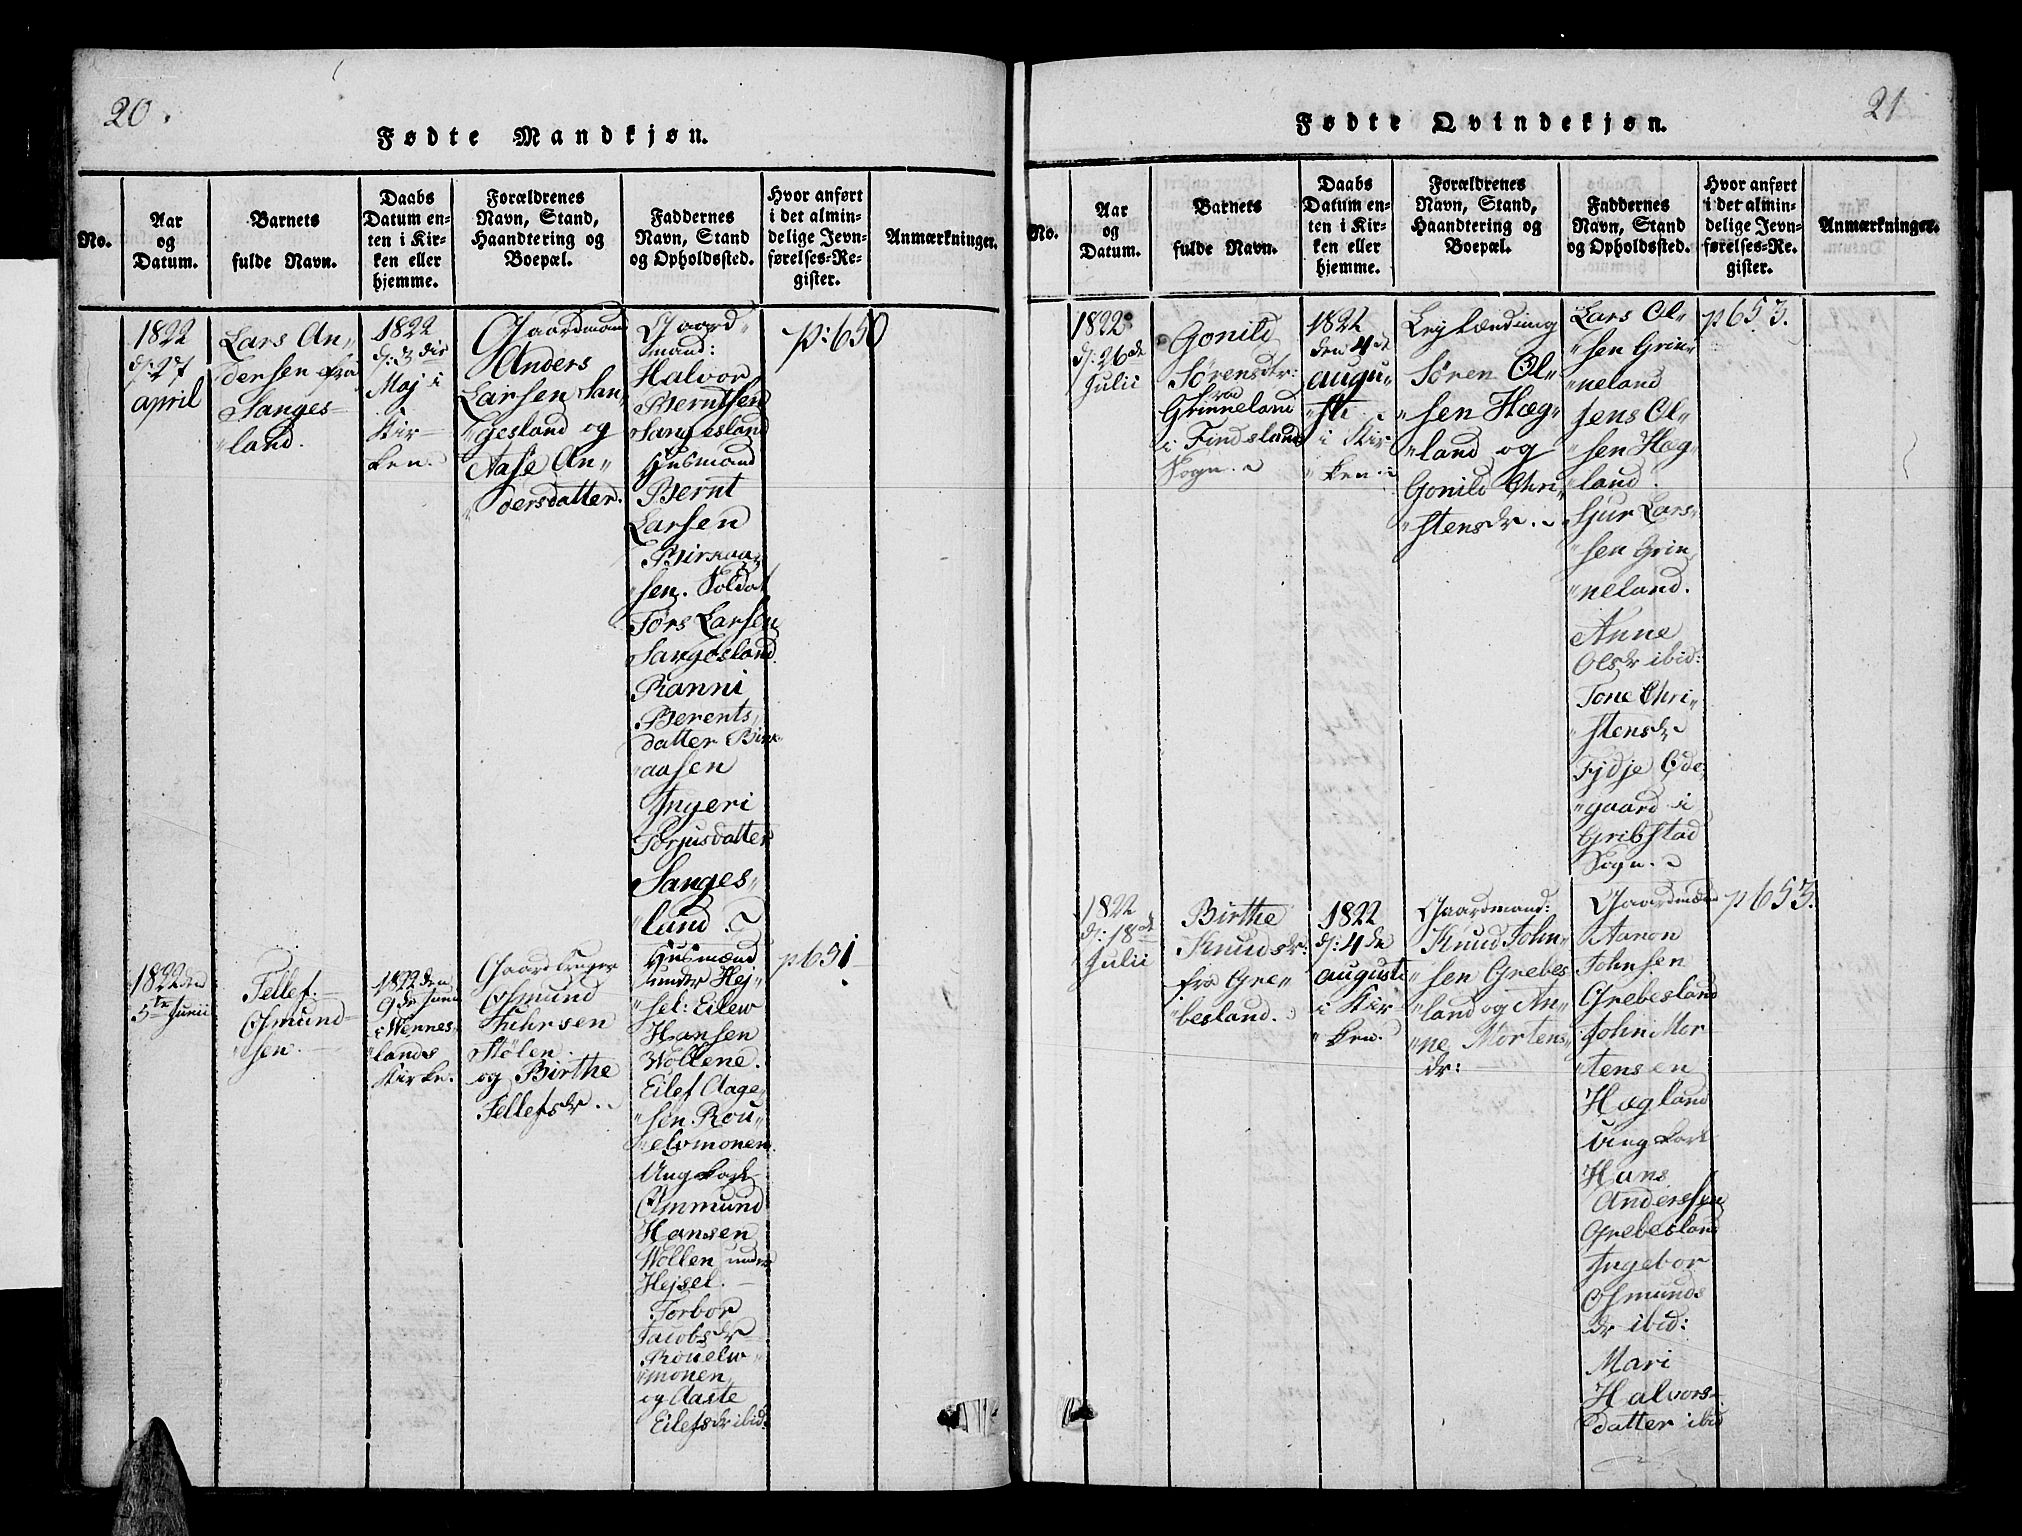 20.
Fødte Mandkjøn.
No.
Aar
og
Datum.
Barnets
fulde Navn.
Daabs
Datum en-
ten i Kir-
ken eller
hjemme.
Forældrenes
Navn, Stand,
Haandtering og
Boepæl.
Faddernes
Navn, Stand
og Opholdssted.
Hvor anført
i det almin-
delige Jevn-
førelses-Re-
gister.
Anmærkninger.
1822
d: 27
april
Lars An„
dersen fra
Sanges„
„land.
1822
Maj i
Kir„
ken.
Gaardmand
Anders
Larsen San„
„gesland og
Aase An„
„dersdatter.
Gaard„
mand:
Halvor
Berntsen
Sangesland
Husmand
Bernt
Larsen
Birkaa„
„sen. Soldat
Tørs Larsen
Sangesland.
Ranni
Berents„
datter Birk„
„aasen
Ingeri
Torjusdatter
Sanges„
„land.
p: 650
1822 den
5te Junii
Tellef
Osmund„
„sen.
1822 den
9de Junii
i Wennes„
„lands
Kirke.
Gaardbruger
Osmund
Stølen.
og Birthe
Tellefsdr.
Husmænd
under Hej„
„sel: Eilew
Hansen
Wollene.
Eilef Aage„
„sen Rou„
„elvmonen.
Ung karl
Ommund
Hansen
Wollen under
Hejsel.
Torbor
Jacobsdr
Rouelw„
„monen
og Aaste
Eilefsdr ibid:
p 651
21
Fødte Qvindekjøn.
No.
Aar
og
Datum.
Barnets
fulde Navn.
Daabs
Datum en-
ten i Kir-
ken eller
hjemme.
Forældrenes
Navn, Stand,
Haandtering og
Boepæl.
Faddernes
Navn, Stand
og Opholdssted.
Hvor anført
i det almin-
delige Jevn-
førelses-Re-
gister.
Anmærkninger.
1822
d: 26de
Julii
Gonild
Sørensdtr:
fra
Grinneland
i Findsland
Sogn.
1822
den 4de
augu„
„sti
i Kir„
„ken
Leylænding
Søren Ol„
„sen Hæg„
„land og
Gonild Chri„
„stensdr.
Lars Ol„
„sen Grin„
„neland
Jens Ol„
„sen Hæg„
„land.
Sjur Lars„
„sen Grin„
„neland.
Anne
Olsdr ibid:
Tone Chri„
„stensdr
Fjdje Øde„
„gaard i
Gribstad
Sogn.
p 653.
1822
d: 18de
Julii
Birthe
Knudsdr:
fra Gre„
„besland.
1822
d: 4de
augusti
i Kir„
„ken.
Gaardmand:
Knud John„
„sen Grebes„
„land og An„
„ne Mortens„
dr:
Gaardmænd
Aaron
Johnsen
Grebesland
John Mor„
„tensen
Hægland
Ung karl
Hans
Anderssen
Grebesland
Ingebor
Osmunds„
dr ibid:
Mari
Halvors„
datter ibid
p 653.